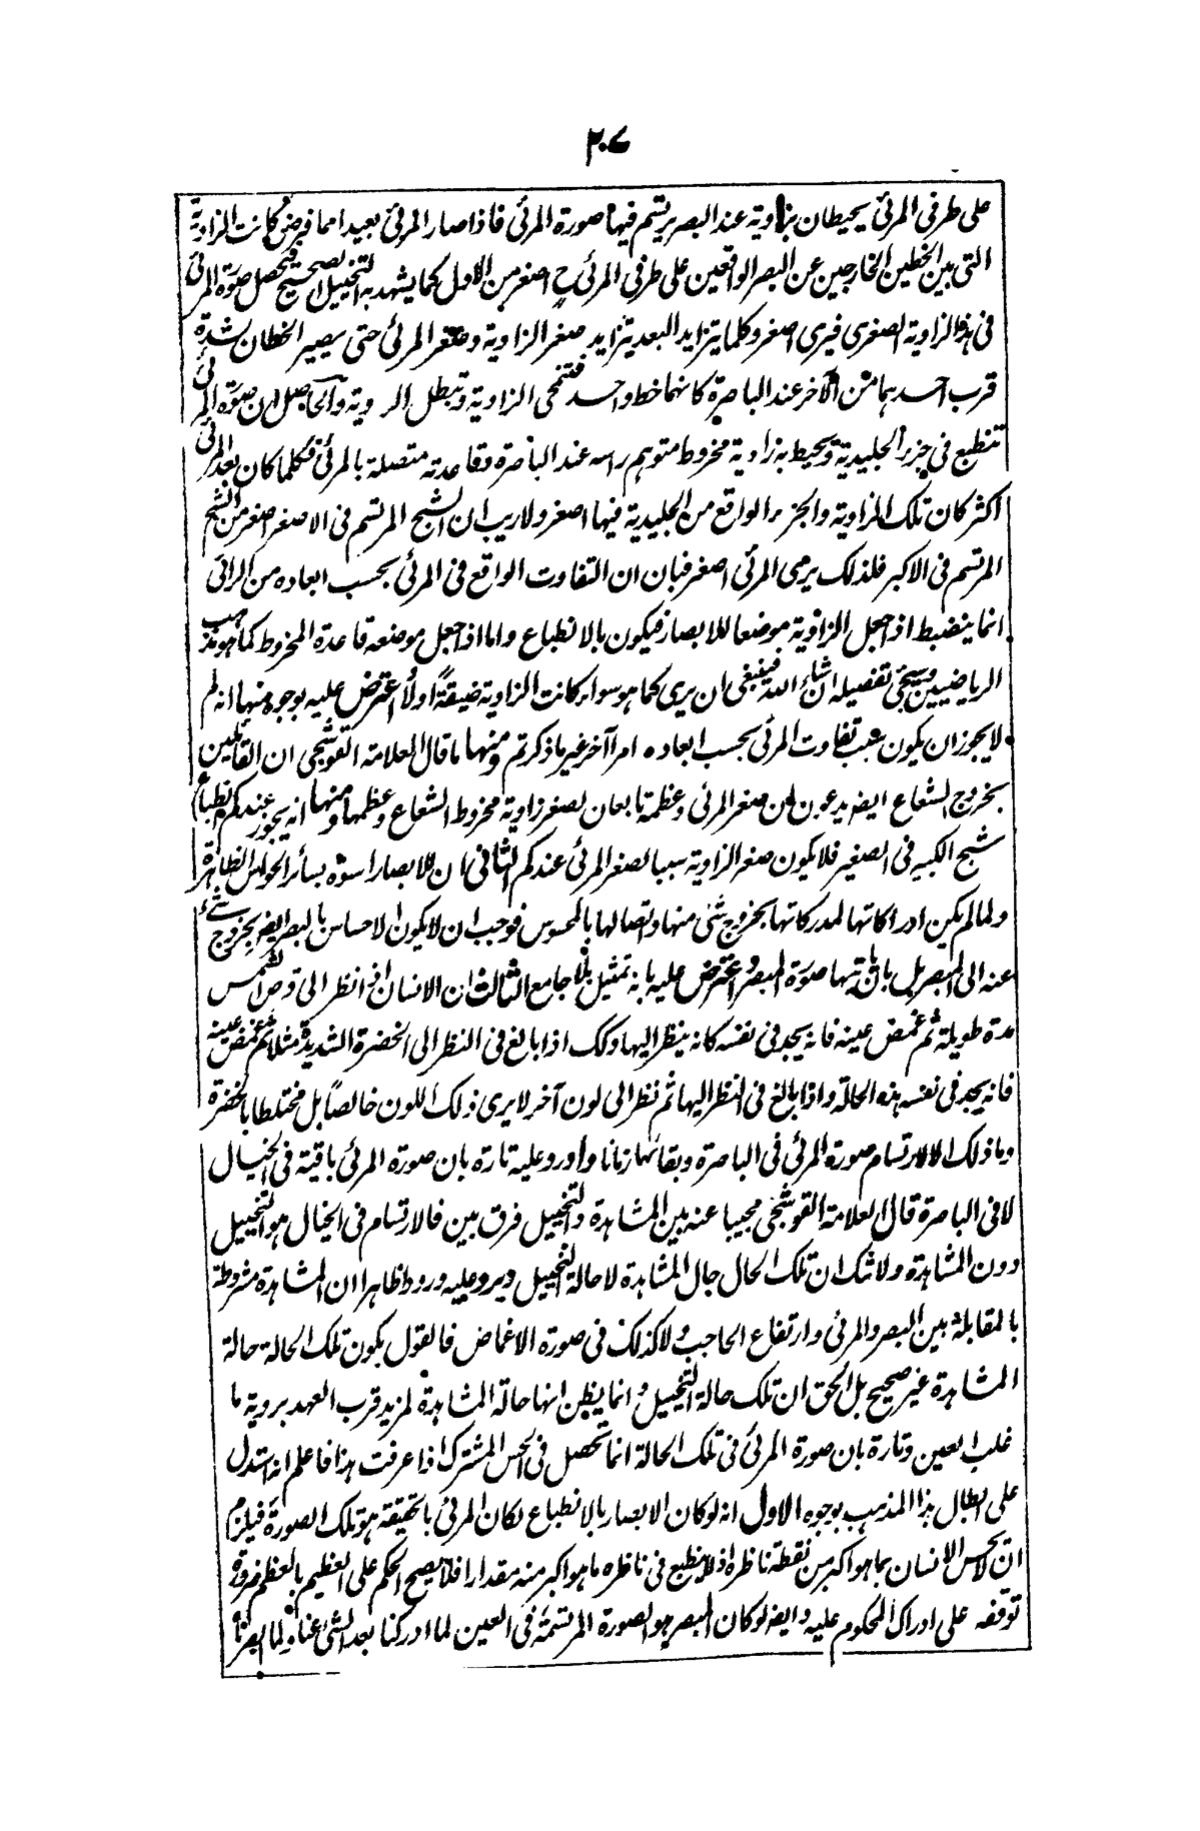 ٢٠٧
على طرفي المرئى يحيطان بزاوية عند البصر يرتسم فيها صورة المرئى فاذا صار المرئى بعيدا مما فرض كانت الزاوية
التى بين الخطين الخارجين عن البصر الواقعين على طرفي المرئى ح اصغر من الاول كما يشهد به التخييل الصحيح فيحصل صورة المرئى
فى هذه الزاوية الصغرى فيرى اصغر وكلما يتزايد البعد يتزايد صغر الزاوية وصغر المرئى حتى يصير الخطان بشدة
قرب احدهما من الآخر عند الباصرة كانهما خط واحد فتنمحى الزاوية وتبطل الروية والحاصل ان صورة المرئى
تنطبع فى جزء الجليدية ويحيط به زاوية مخروط متوهم راسه عند الباصرة وقاعدته متصلة بالمرئى فكلما كان بعد المرئى
اكثر كان تلك الزاوية والجزء الواقع من الجليدية فيها اصغر ولا ريب ان الشبح المرتسم فى الاصغر اصغر من الشبح
المرتسم فى الاكبر فلذلك يرى المرئى اصغر فبان ان التفاوت الواقع فى المرئى بحسب ابعاده من الرائى
انما ينضبط اذا جعل الزاوية موضعا للابصار فيكون بالانطباع واما اذا جعل موضعه قاعدة المخروط كما هو مذهب
الرياضيين وسيجئ تفصيله ان شاء الله فينبغى ان يرى كما هو سواء كانت الزاوية ضيقةً اولا واعترض عليه بوجوه منها انه لم
لا يجوز ان يكون سبب تفاوت المرئى بحسب ابعاده امرا آخر غير ما ذكرتم ومنها ما قال العلامة القوشجى ان القائلين
بخروج الشعاع ايضا يدعون ان صغر المرئى وعظمه تابعان لصغر زاوية مخروط الشعاع وعظمها ومنها انه يجوز عندكم انطباع
شبح الكبير فى الصغير فلا يكون صغر الزاوية سببا لصغر المرئى عندكم الثانى ان للابصار اسوة بسائر الحواس الظاهرة
ولما لم يكن ادراكاتها لمدركاتها بخروج شئ منها واتصالها بالمحسوس فوجب ان لا يكون الاحساس بالبصر ايضا بخروج شئ
عنه الى المبصر بل بان تاتيها صورة المبصر واعترض عليه بانه تمثيل بلا جامع الثالث ان الانسان اذا نظر الى قرص الشمس
مدة طويلة ثم غمض عينه فانه يجد فى نفسه كانه ينظر اليها وكك اذا بالغ فى النظر الى الخضرة الشديدة مثلا ثم غمض عينه
فانه يجد فى نفسه هذه الحالة واذا بالغ فى النظر اليها ثم نظر الى لون آخر لا يرى ذلك اللون خالصًا بل مختلطا بالخضرة
وما ذلك الا لارتسام صورة المرئى فى الباصرة وبقائها زمانا واورد عليه تارة بان صورة المرئى باقية فى الخيال
لا فى الباصرة قال العلامة القوشجى مجيبا عنه بين المشاهدة والتخييل فرق بين فالارتسام فى الخيال هو التخييل
دون المشاهدة ولا شك ان تلك الحال حال المشاهدة لا حالة التخييل ويرد عليه ورودا ظاهرا ان المشاهدة مشروطة
بالمقابلة بين البصر والمرئى وارتفاع الحاجب ولا كذلك فى صورة الاغماض فالقول بكون تلك الحالة حالة
المشاهدة غير صحيح بل الحق ان تلك حالة التخييل وانما يظن انها حالة المشاهدة لمزيد قرب العهد بروية ما
غلب العين وتارة بان صورة المرئى فى تلك الحالة انما تحصل فى الحس المشترك اذا عرفت هذا فاعلم انه استدل
على ابطال هذا المذهب بوجوه الاول انه لو كان الابصار بالانطباع لكان المرئى بالحقيقة هو تلك الصورة فيلزم
ان لا يحس الانسان بما هو اكبر من نقطة ناظره اذ لا ينطبع فى ناظره ما هو اكبر منه مقدارا فلا يصح الحكم على العظيم بالعظم ضرورة
توقفه على ادراك المحكوم عليه وايضا لو كان المبصر هو الصورة المرتسمة فى العين لما ادركنا بعد الشئ عنا ولما ابصرنا